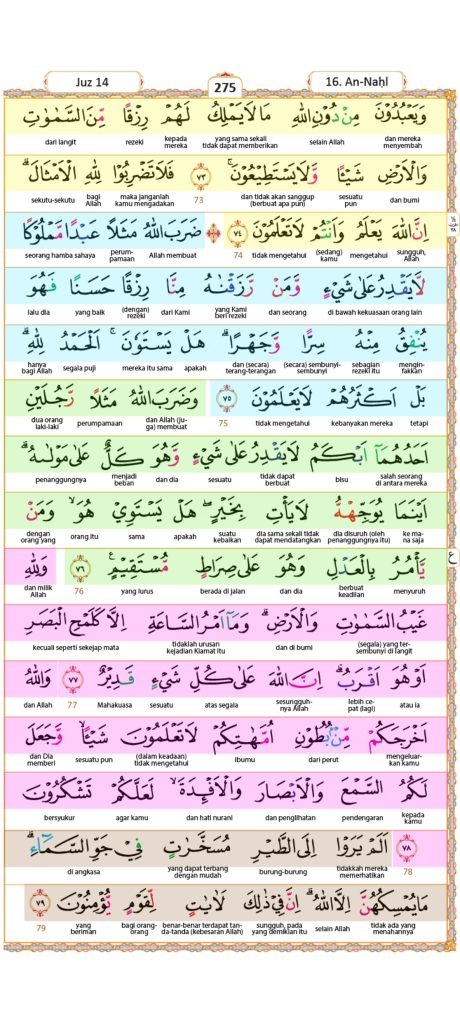 Juz 14
275
16. An-Naḥl
وَيَعْبُدُوْنَ مِنْ دُوْنِ اللّٰهِ مَا لَا يَمْلِكُ لَهُمْ رِزْقًا مِّنَ السَّمٰوٰتِ
dan mereka menyembah selain Allah yang sama sekali tidak dapat memberikan kepada mereka rezeki dari langit
وَالْاَرْضِ شَيْـًٔا وَّلَا يَسْتَطِيْعُوْنَ ۚ ٧٣ فَلَا تَضْرِبُوْا لِلّٰهِ الْاَمْثَالَ ۗ
dan bumi sesuatu pun dan tidak akan sanggup (berbuat apa pun) 73 maka janganlah kamu mengadakan bagi Allah sekutu-sekutu
اِنَّ اللّٰهَ يَعْلَمُ وَاَنْتُمْ لَا تَعْلَمُوْنَ ٧٤ ۞ ضَرَبَ اللّٰهُ مَثَلًا عَبْدًا مَّمْلُوْكًا
sungguh, Allah mengetahui (sedang) kamu tidak mengetahui 74 Allah membuat perumpamaan seorang hamba sahaya
لَّا يَقْدِرُ عَلٰى شَيْءٍ وَّمَنْ رَّزَقْنٰهُ مِنَّا رِزْقًا حَسَنًا فَهُوَ
di bawah kekuasaan orang lain dan seorang yang Kami beri rezeki dari Kami (dengan) rezeki yang baik lalu dia
يُنْفِقُ مِنْهُ سِرًّا وَّجَهْرًا ۗ هَلْ يَسْتَوٗنَ ۚ اَلْحَمْدُ لِلّٰهِ ۗ
menginfakkan sebagian rezeki itu (secara) sembunyi-sembunyi dan (secara) terang-terangan apakah mereka itu sama segala puji hanya bagi Allah
بَلْ اَكْثَرُهُمْ لَا يَعْلَمُوْنَ ٧٥ وَضَرَبَ اللّٰهُ مَثَلًا رَّجُلَيْنِ
tetapi kebanyakan mereka tidak mengetahui 75 dan Allah (juga) membuat perumpamaan dua orang laki-laki
اَحَدُهُمَآ اَبْكَمُ لَا يَقْدِرُ عَلٰى شَيْءٍ وَّهُوَ كَلٌّ عَلٰى مَوْلٰىهُ ۗ
salah seorang di antara mereka bisu tidak dapat berbuat sesuatu dan dia menjadi beban penanggungnya
اَيْنَمَا يُوَجِّهْهُّ لَا يَأْتِ بِخَيْرٍ ۖ هَلْ يَسْتَوِيْ هُوَ ۙ وَمَنْ
ke mana saja dia disuruh (oleh penanggungnya itu) dia sama sekali tidak dapat mendatangkan suatu kebaikan apakah sama orang itu dengan orang yang
يَّأْمُرُ بِالْعَدْلِ وَهُوَ عَلٰى صِرَاطٍ مُّسْتَقِيْمٍ ۚ ٧٦ وَلِلّٰهِ
menyuruh berbuat keadilan dan dia berada di jalan yang lurus 76 dan milik Allah
غَيْبُ السَّمٰوٰتِ وَالْاَرْضِ ۗ وَمَآ اَمْرُ السَّاعَةِ اِلَّا كَلَمْحِ الْبَصَرِ
(segala) yang tersembunyi di langit dan di bumi tidaklah urusan kejadian Kiamat itu kecuali seperti sekejap mata
اَوْ هُوَ اَقْرَبُ ۗ اِنَّ اللّٰهَ عَلٰى كُلِّ شَيْءٍ قَدِيْرٌ ٧٧ وَاللّٰهُ
atau ia lebih cepat (lagi) sesungguhnya Allah atas segala sesuatu Mahakuasa 77 dan Allah
اَخْرَجَكُمْ مِّنْۢ بُطُوْنِ اُمَّهٰتِكُمْ لَا تَعْلَمُوْنَ شَيْـًٔا ۙ وَّجَعَلَ
mengeluarkan kamu dari perut ibumu (dalam keadaan) tidak mengetahui sesuatu pun dan Dia memberi
لَكُمُ السَّمْعَ وَالْاَبْصَارَ وَالْاَفْـِٕدَةَ ۙ لَعَلَّكُمْ تَشْكُرُوْنَ
kepada kamu pendengaran dan penglihatan dan hati nurani agar kamu bersyukur
٧٨ اَلَمْ يَرَوْا اِلَى الطَّيْرِ مُسَخَّرٰتٍ فِيْ جَوِّ السَّمَاۤءِ ۗ
78 tidakkah mereka memerhatikan burung-burung yang dapat terbang dengan mudah di angkasa
مَا يُمْسِكُهُنَّ اِلَّا اللّٰهُ ۗ اِنَّ فِيْ ذٰلِكَ لَاٰيٰتٍ لِّقَوْمٍ يُّؤْمِنُوْنَ ٧٩
tidak ada yang menahannya selain Allah sungguh, pada yang demikian itu benar-benar terdapat tanda-tanda (kebesaran Allah) bagi orang-orang yang beriman 79
ع